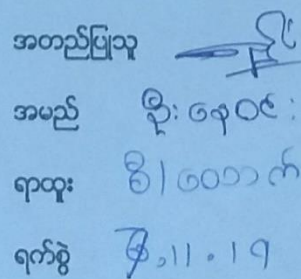 အတည်ပြုသူ
အမည် ဦးနေဝင်း
ရာထူး စီ/ထောက်
ရက်စွဲ .11.19